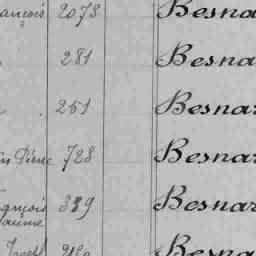 ançois 2078 Besna
281 Besna
251 Besnar
Pierre 728 Besnar
ançois 339 Besnar
laume
Besna